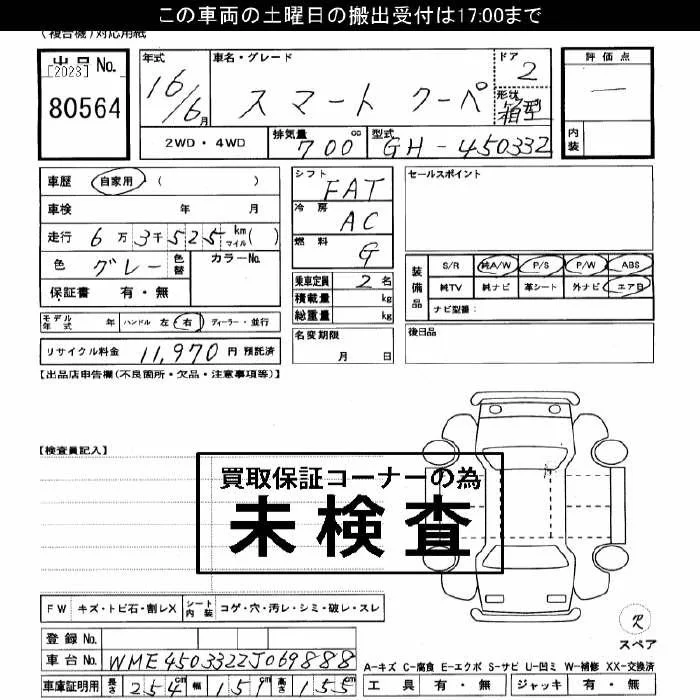 この車両の土曜日の搬出受付は17:00まで
(複合機)対応用紙
出品No.
[2023]
80564
年式
16/6月
車名・グレード
スマート クーペ
ドア
2
形状
箱型
2WD・4WD
排気量
700cc
型式
GH-450332
評価点
―
内装
車歴 自家用・( )
車検 年 月
走行 6万3千525km マイル( )
色 グレー 色替 カラーNo.
保証書 有・無
シフト
FAT
冷房
AC
燃料
G
乗車定員 2名
積載量 kg
総重量 kg
名変期限
月 日
セールスポイント
装備品
S/R 純A/W P/S P/W ABS
純TV 純ナビ 革シート 外ナビ エアB
ナビ型番:
後日品
モデル年式 年 ハンドル 左・右 ディーラー・並行
リサイクル料金 11,970円 預託済
【出品店申告欄(不良箇所・欠品・注意事項等)】
【検査員記入】
買取保証コーナーの為
未検査
FW キズ・トビ石・割レX シート内装 コゲ・穴・汚レ・シミ・破レ・スレ
登録No.
車台No. WME4503322J069888
車庫証明用 長さ 254cm 幅 151cm 高さ 155cm
スペア
A-キズ C-腐食 E-エクボ S-サビ U-凹ミ W-補修 XX-交換済
工具 有・無 ジャッキ 有・無